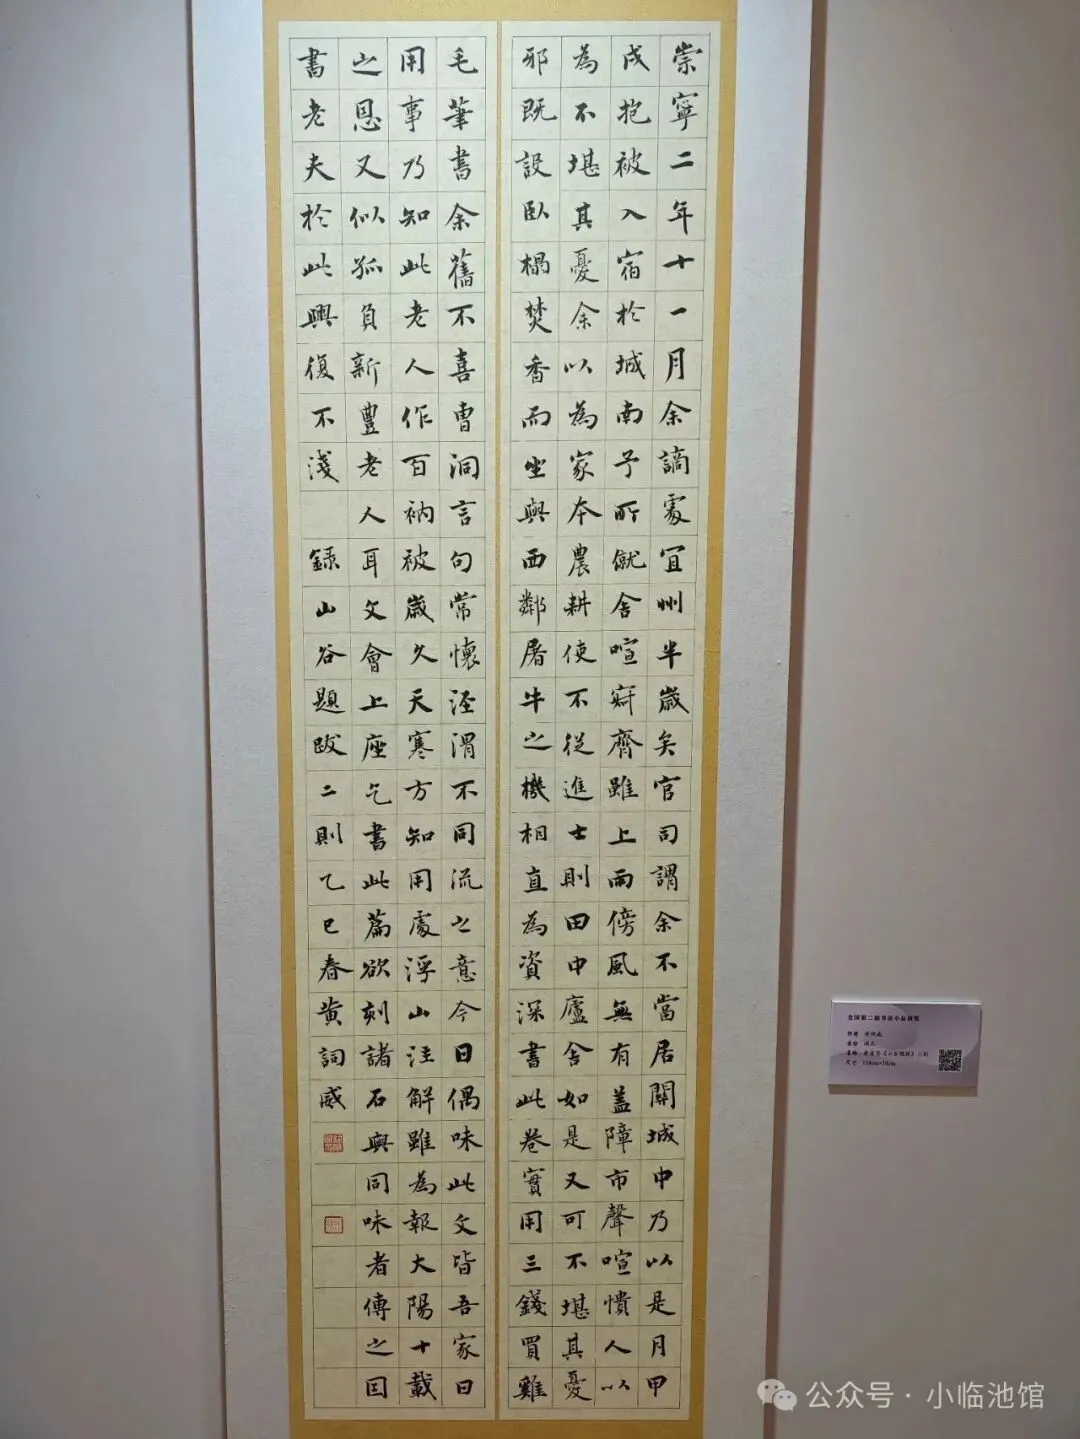 崇寧二年十一月余謫處宜州半歲矣官司謂余不當居關城中乃以是月甲
戌抱被入宿於城南予所僦舍喧寂齊雖上而傍風無有蓋障市聲喧憒人以
為不堪其憂余以為家本農耕使不從進士則田中廬舍如是又可不堪其憂
邪既設臥榻焚香而坐與西鄰屠牛之機相直為資深書此卷實用三錢買雞
毛筆書余舊不喜曹洞言句常懷涇渭不同流之意今日偶味此文皆吾家日
用事乃知此老人作百衲被歲久天寒方知用處浮山注解雖為報大陽十載
之恩又似孤負新豐老人耳文會上座乞書此篇欲刻諸石與同味者傳之因
書老夫於此興復不淺 錄山谷題跋二則乙巳春黃詞威
全国第二届书法小品展览
作者 黄词威
名称 黄庭坚《山谷题跋》二则
尺寸
公众号·小临池馆